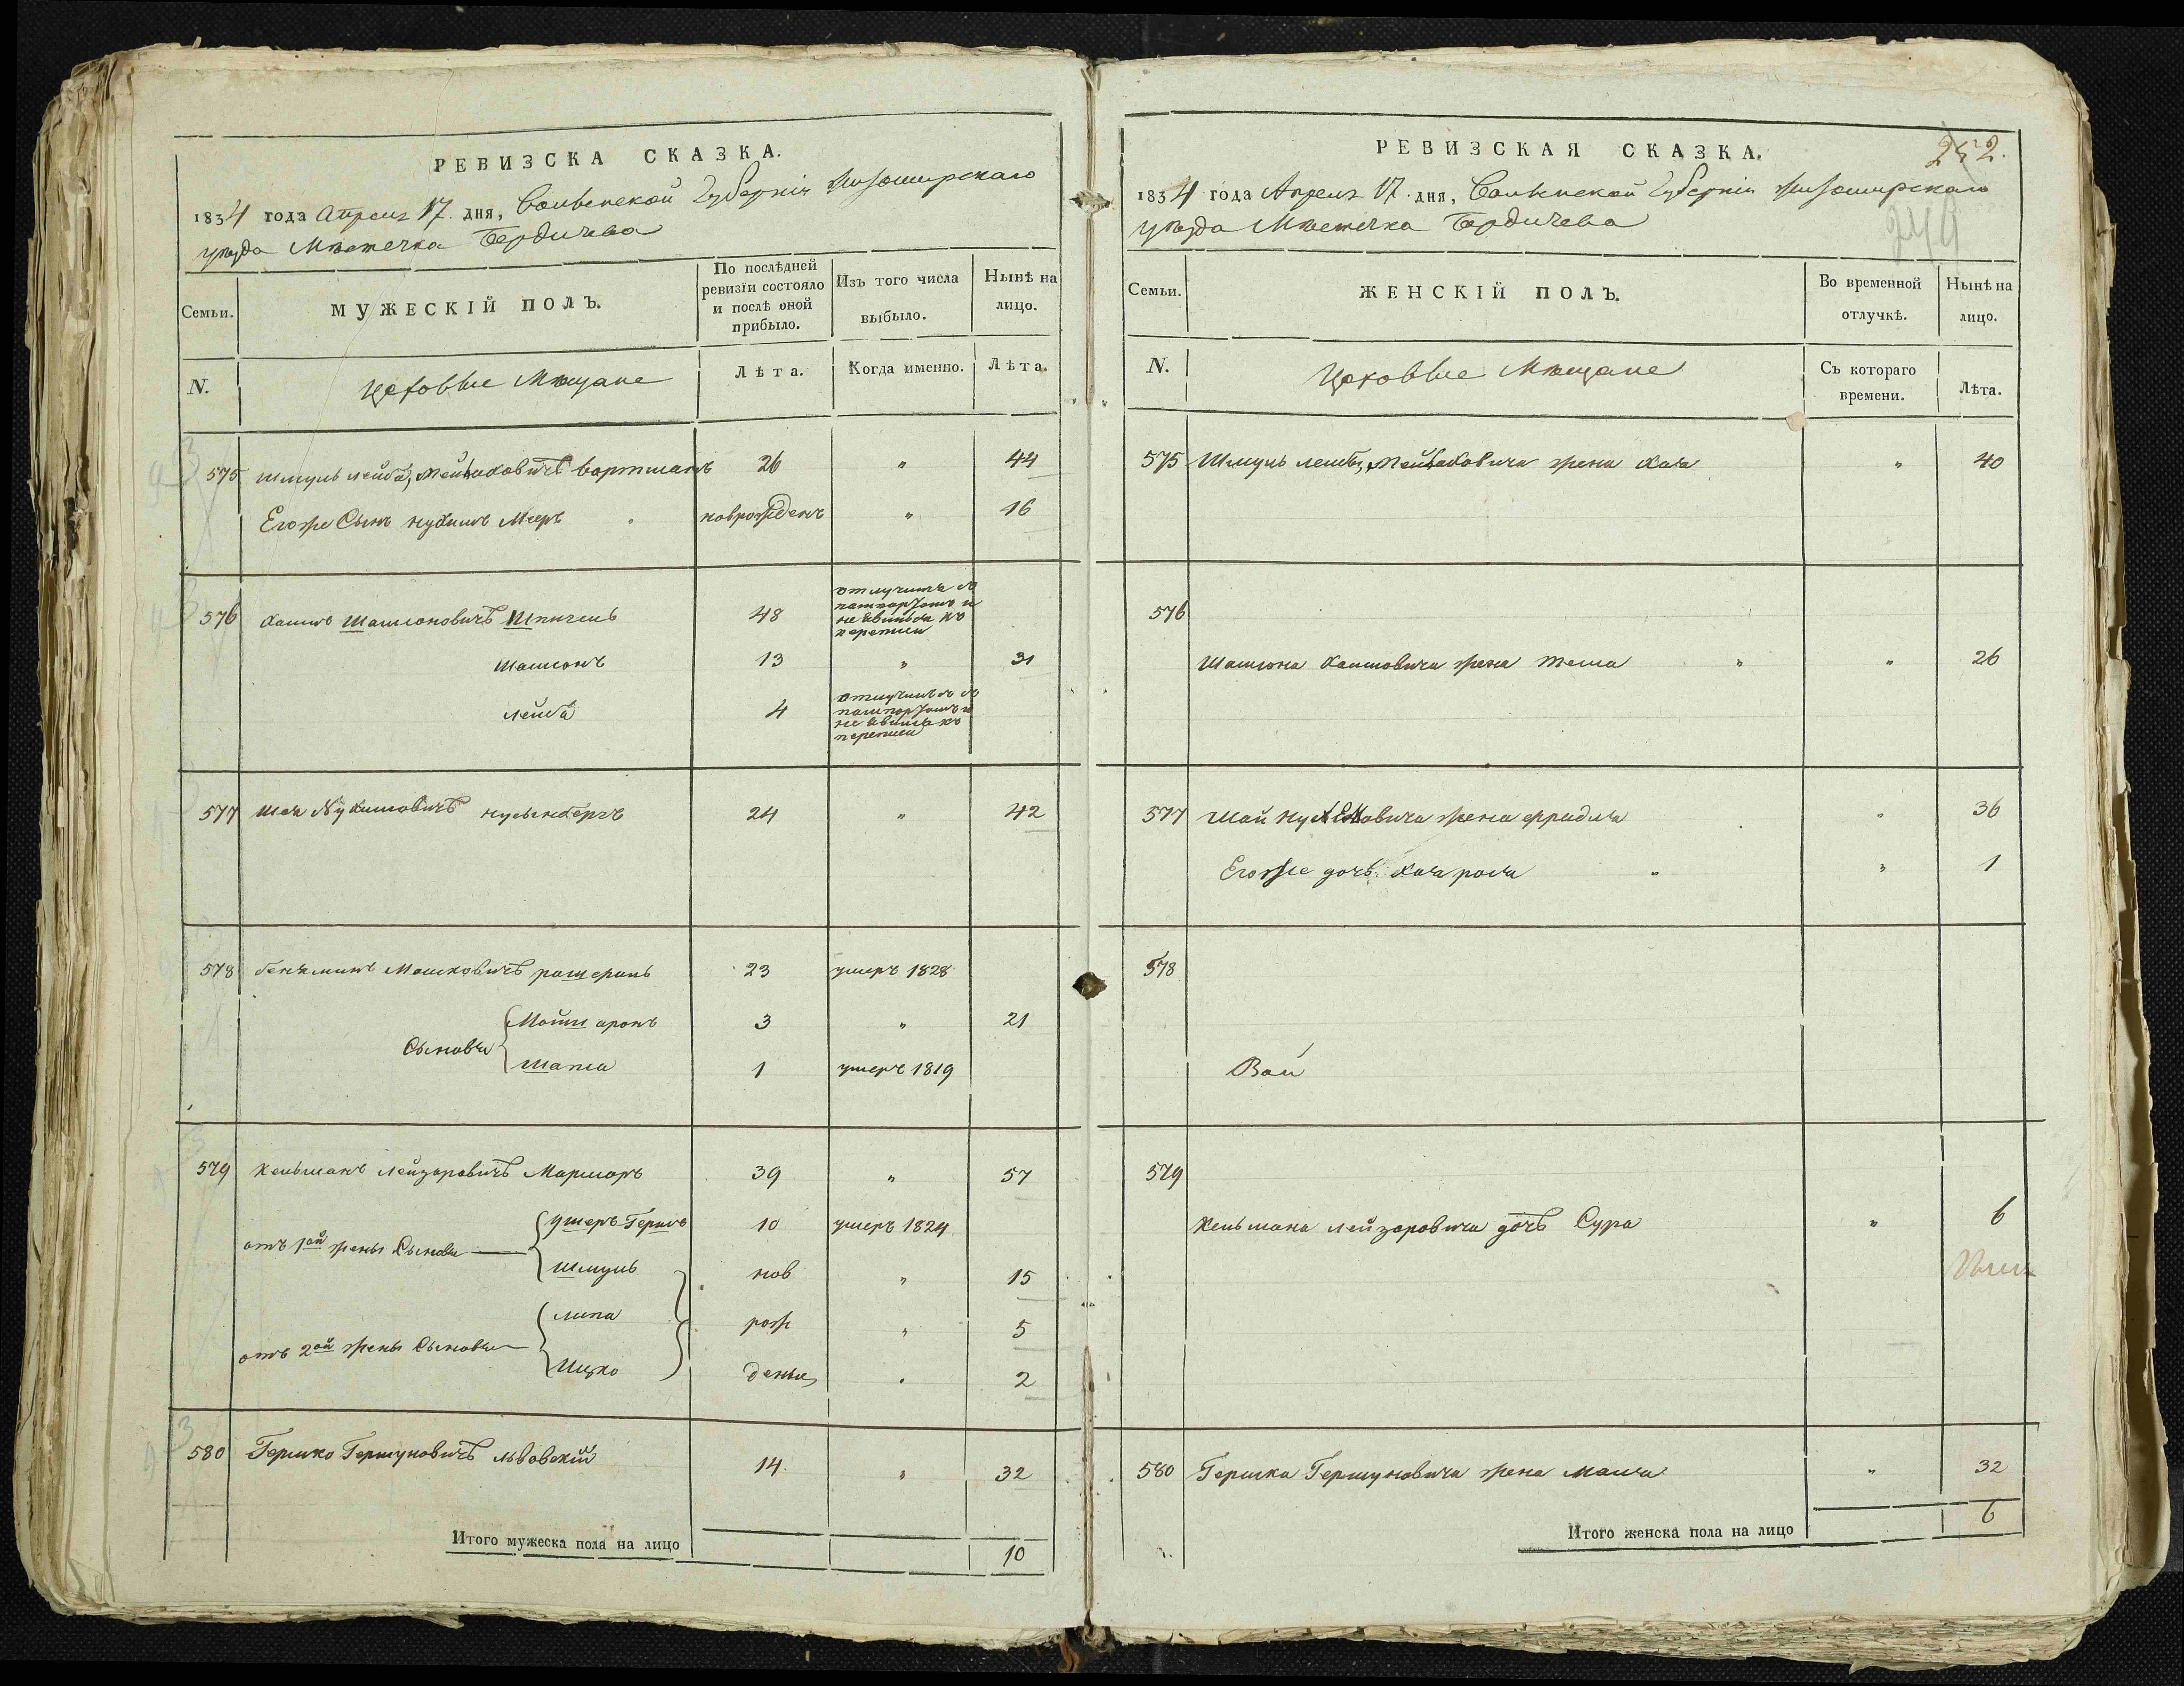 РЕВИЗСКА СКАЗКА.
1834 года Апреля 17. дня, Волынской Губерніи Житомирскаго
уѣзда Мѣстечка Бердичева
Семьи. МУЖЕСКІЙ ПОЛЪ. По послѣдней ревизіи состояло и послѣ оной прибыло. Изъ того числа выбыло. Нынѣ на лицо.
N. Цеховые Мѣщане Лѣта. Когда именно. Лѣта.
575 Шмуль Лейба, вортманъ 26 " 44
Егоже Сынъ Нухимъ Мееръ новрожденъ " 16
576 Хаимъ Шамсоновичъ Шпигель 48 отлучился съ пашпортомъ и не явился къ переписи
Шамсонъ 13 " 31
Лейба 4 отлучился съ пашпортомъ и не явился къ переписи
577 Шая Нухимовичъ Нусынбергъ 24 " 42
578 Бенъминъ Мошковичъ 23 умеръ 1828
Сыновья Мойши аронъ 3 " 21
Шапса 1 умеръ 1819
579 Кельманъ Лейзоровичъ Марморъ 39 " 57
отъ 1ой жены Сыновья Ушеръ Гершъ 10 умеръ 1824
Шмуль нов " 15
отъ 2ой жены Сыновья Липа рож " 5
Ицко деные " 2
580 Гершко Гершуновичъ Львовскій 14. " 32
Итого мужеска пола на лицо 10
РЕВИЗСКАЯ СКАЗКА. 252.
1834 года Апреля 17. дня, Волынской Губерніи Житомирскаго
уѣзда Мѣстечка Бердичева
249
Семьи. ЖЕНСКІЙ ПОЛЪ. Во временной отлучкѣ. Нынѣ на лицо.
N. Цеховые Мѣщане Съ котораго времени. Лѣта.
575 Шмуль Лейбы, жена Хая " 40
576
Шамсона Хаимовича жена " " 26
577 Шаи Нухимовича жена фрадля " 36
Егоже дочь Хая рося " " 1
578
579
Кельмана Лейзоровича дочь Сура " 6
580 Гершка Гершуновича жена малка " 32
Итого женска пола на лицо 6